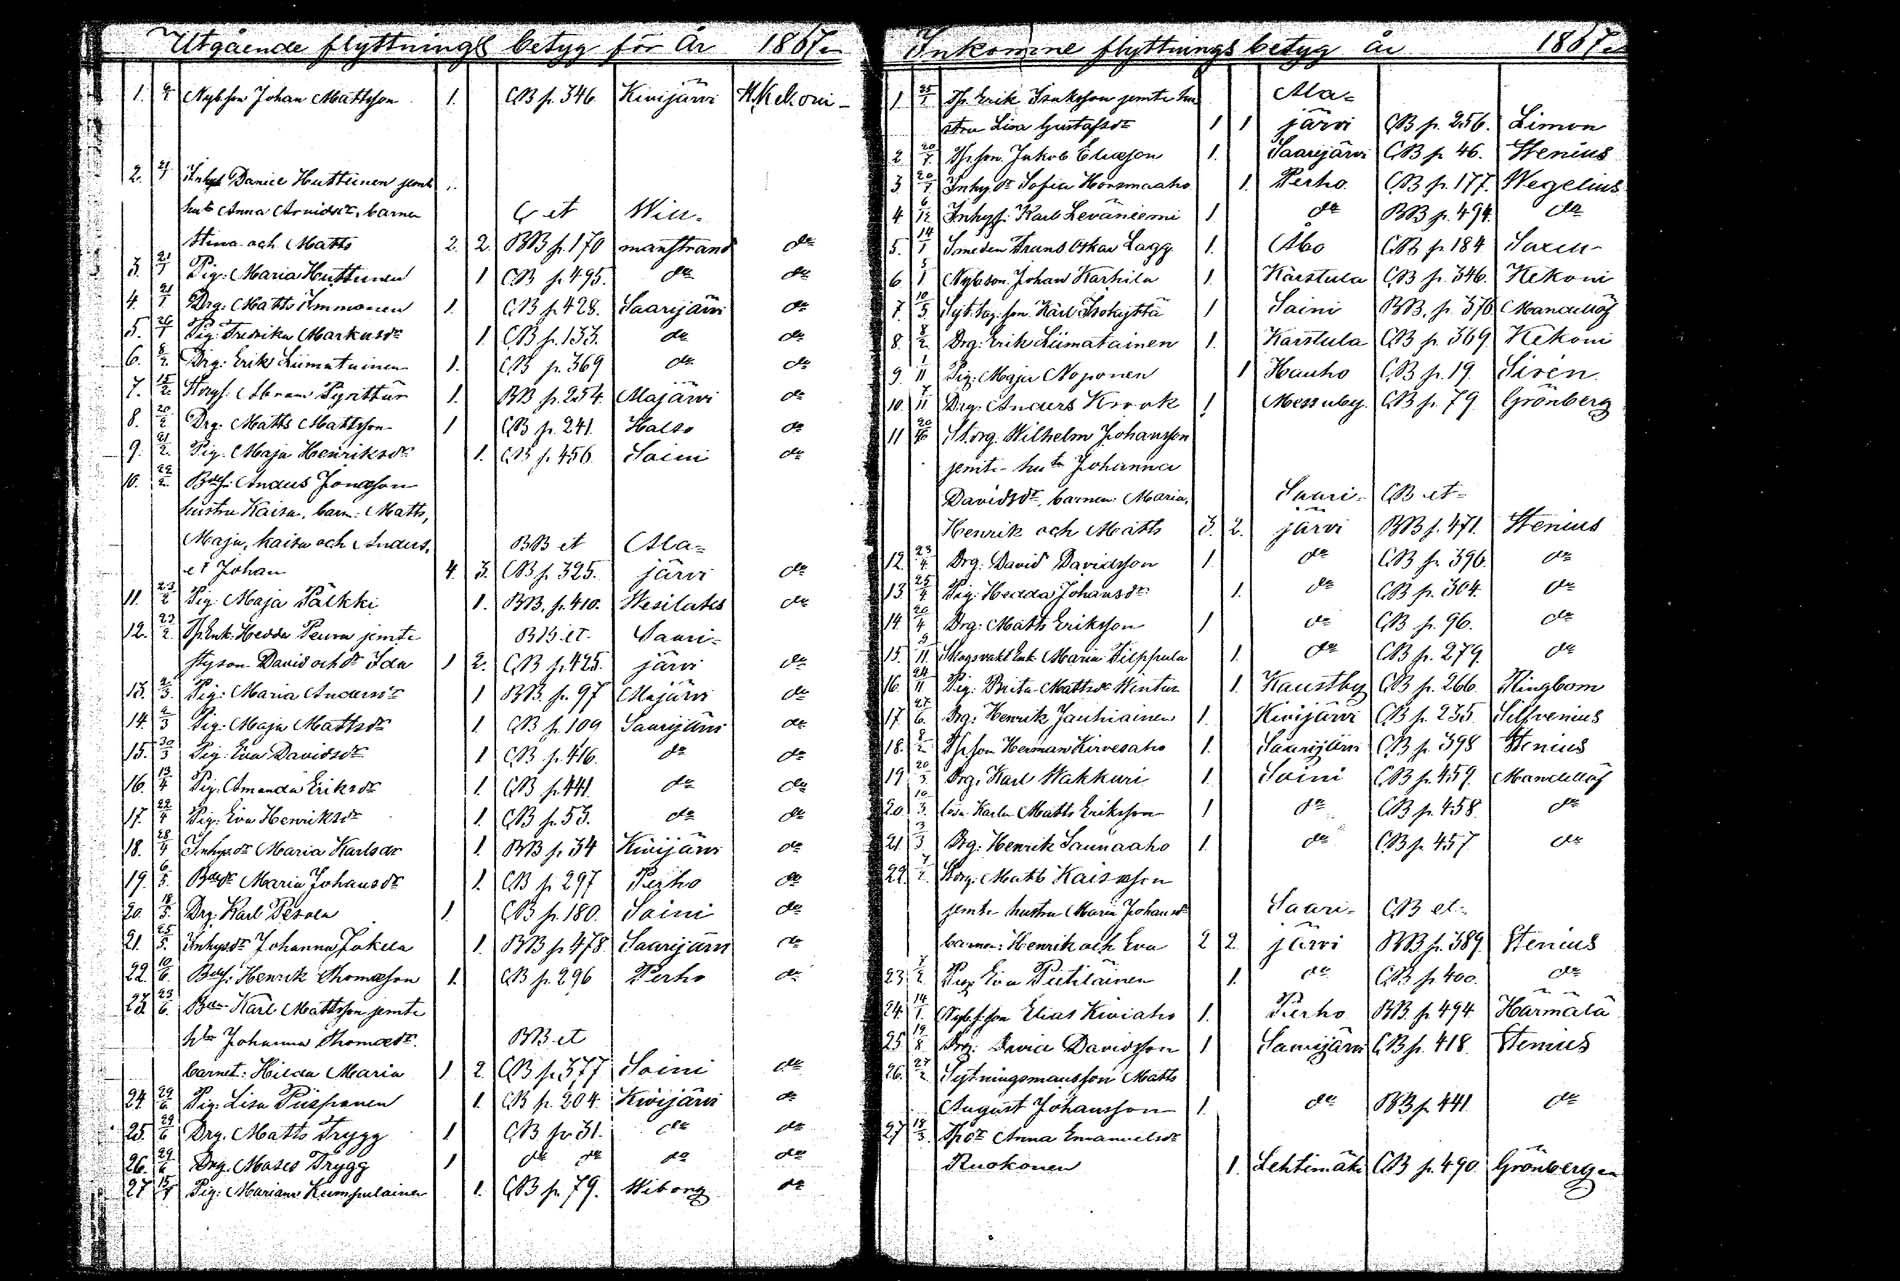 Utgående flyttnings betyg för År 1867
1. Nybs.son Johan Mattsson 1. CB p. 346 Kivijärvi H. Kekoni
2. 21/1 Inhys Daniel Huttunen jemte
hust. Anna Arvidsdr, barnen CB et Will-
Stina och Matts 2. 2. BB p. 170 manstrand do
3. 21/1 Pig: Maria Huttunen 1 CB p. 495. do do
4. 21/1 Drg: Matts Immonen 1. CB p. 428. Saarijärvi do
5. 26/1 Pig: Fredrika Markusdr 1 CB p. 133. do do
6. 8/2 Drg: Erik Liimatainen 1. CB p. 369 do do
7. 15/2 Abram 1. BB p. 254. Alajärvi do
8. 20/2 Drg: Matts Mattsson 1 CB p. 241. Halso do
9. 21/2 Pig: Maja Henriksdr 1. CB p. 456. Soini do
10. 22/2 Anders Jonasson
hustru Kaisa, barn: Matts,
Maja, Kaisa och Anders, BB et Ala-
et Johan 4. 3. CB p. 325. järvi do
11. 23/2 Pig: Maja Pälkki 1. BB. p. 410. Wesilaks do
12. 23/2 Enk: Hedda Peura jemte BB et Saari-
styson David och dr Ida 1 2. CB p. 425. järvi do
13. 2/3 Pig: Maria Andersdr 1 BB. p. 97 Alajärvi do
14. 2/3 Pig: Maja Mattsdr 1. CB p. 109 Saarijärvi do
15. 30/3 Pig: Eva Davidsdr 1 CB p. 416. do do
16. 13/4 Pig: Amanda Eriksdr 1. CB p. 441. do do
17. 22/4 Pig: Eva Henriksdr 1. CB p. 53. do do
18. 28/4 Inhys.dr Maria Karlsdr 1. BB p. 34 Kivijärvi do
19. 6/5 Maria Johansdr 1. CB p. 297 Perho do
20. 18/5 Drg: Karl Pesola 1. CB p. 180. Soini do
21. 25/5 Inhysdr Johanna Jokela 1. BB p. 478. Saarijärvi do
22. 10/6 Henrik Thomasson 1. CB p. 296 Perho do
23. 23/6 Karl Mattsson jemte
Johanna Thomasdr. BB et
barnet: Hilda Maria 1 2. CB p. 377 Soini do
24. 29/6 Pig: Lisa Piispanen 1. CB p. 204. Kivijärvi do
25. 29/6 Drg. Matts Trygg 1 CB p. 31. do do
26. 29/6 Drg. Moses Trygg 1 do do do do
27 Pig: Mariana Kumpulainen 1. CB p. 79. Wiborg do
Inkomne flyttnings betyg år 1867
1. 25/1 Erik Isaksson jemte hu Ala-
stru Lisa Gustafsdr 1 1 järvi CB p. 256. Limon
2 20/1 Jakob Eliasson 1. Saarijärvi CB p 46. Stenius
3 20/1 Inhy.dr Sofia Honsmaaho 1. Perho CB p. 177. Wegelius
4 6/12 Karl Leväniemi 1. do BB p. 494. do
5. 14/1 Smeden Frans Oskar Lagg 1. Åbo CB p. 184 Saxen
6 Nybs.son. Johan Karhila 1. Karstula CB p. 346. Kekoni
7. 10/5 Karl Isohyttä 1 Soini BB. p. 376 Mandellöf
8. 8/2 Drg: Erik Liimatainen 1. Karstula CB p. 369. Kekoni
9 1/11 Pig: Maja Noponen 1 Hauho CB p. 19 Sirén
10. 7/11 Drg: Anders Krook 1 Messuby. CB p. 79 Grönberg
11 Wilhelm Johansson
jemte hu Johanna
Davidsdr, barnen: Maria, Saari- CB et
Henrik och Matts 3. 2. järvi BB p. 471. Stenius
12. 23/4 Drg: David Davidsson 1. do CB p. 396. do
13. 25/4 Pig: Hedda Johansdr 1. do CB p. 304. do
14. 20/4 Drg: Matts Eriksson 1. do CB p. 96. do
15. Skogsvakt Enk. Maria Hilppula 1. do CB p. 279. do
16. 24/11 Pig: Brita Mattsdr Winter 1. Kaustby CB p. 266. Ringbom
17 27/6 Drg: Henrik Jauhiainen 1. Kivijärvi CB p. 235. Silfvenius
18. 8/2 Herman Hirvesaho 1. Saarijärvi CB p. 398 Stenius
19 20/3 Drg: Karl Wakkuri 1. Soini CB p. 459. Mandellöf
20. 10/3 Matts Eriksson 1 do CB p. 458. do
21. 3/3 Drg: Henrik Saunaaho 1. do CB p. 457 do
22. Matts
jemte hustru Maria Johansdr Saari- CB et
barnen: Henrik och Eva 2 2. järvi BB p. 389. Stenius
23 Eva Piitiläinen 1. do CB p. 400. do
24. 14/1 Elias Kiviaho 1. Perho BB. p. 494 Härmälä
25 19/8 Drg: David Davidsson 1 Saarijärvi CB p. 418. Stenius
26. 27/2 Sytningsmansson Matts
August Johansson 1. do BB p. 441. do
27 18/3 Anna Emanuelsdr
Ruokonen 1. Lehtimäki CB p. 490. Grönberg